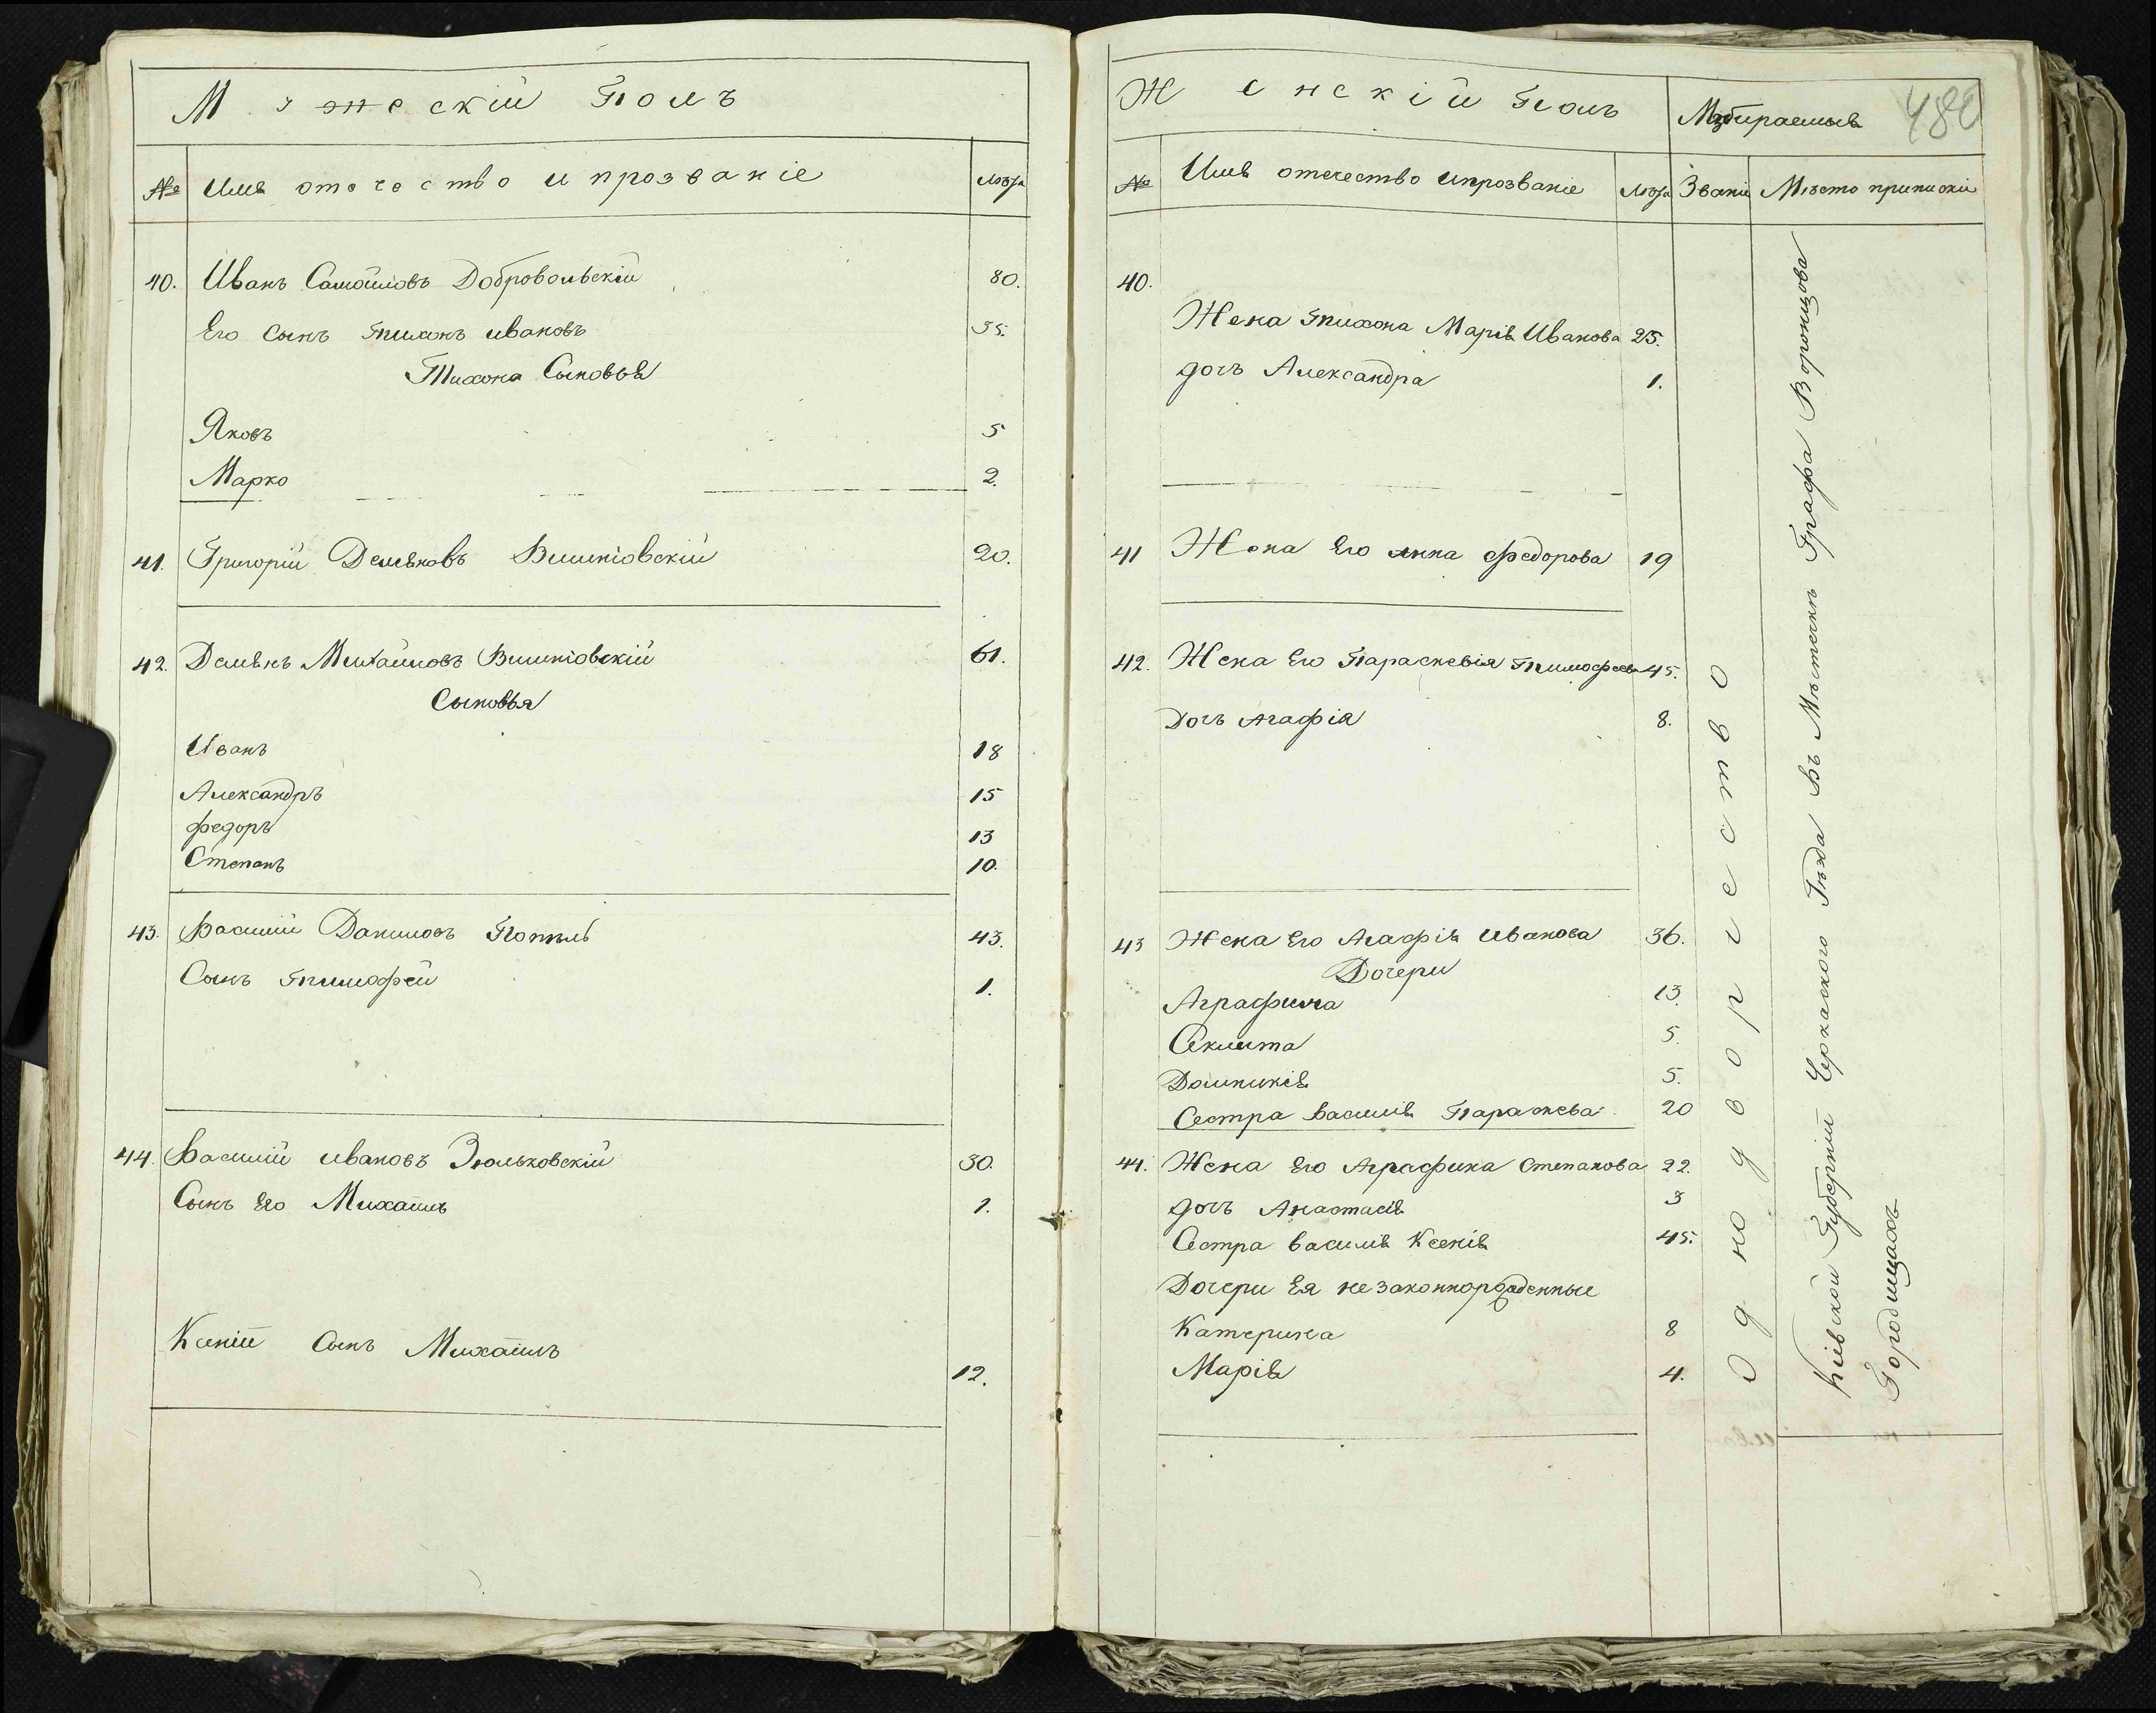 Мужескій Полъ
№ Имя отечество и прозваніе Лѣта
40. Иванъ Самойловъ Добровольскій 80.
Его сынъ Тихонъ Ивановъ 35.
Тихона Сыновья
Яковъ 5
Марко 2.
41. Григорій Демьяновъ Вишнiовскій 20.
42. Демьянъ Михайловъ Вишнiовскій 61.
Сыновья
Иванъ 18
Александръ 15
Федоръ 13
Степанъ 10.
43. Василій Даниловъ 43.
Сынъ Тимофей 1.
44. Василій Ивановъ Зюльковскій 30.
Сынъ Его Михаилъ 1.
Ксеніи Сынъ Михаилъ
12.
Женскій Полъ
Избираемыя
480
№ Имя отечество и прозваніе Лѣта Званіе Мѣсто приписки
40.
Жена Тихона Марія Иванова 25.
дочь Александра 1.
41 Жена Его Анна Федорова 19
42. Жена Его Параскевія Тимофеева 45.
Дочь Агафія 8.
43 Жена Его Агафія Иванова 36.
Дочери
Аграфина 13.
Секлита 5.
Домникія 5.
Сестра Василія Параскева 20
44. Жена Его Аграфина Степанова 22.
дочь Анастасія 3
Сестра Василія Ксенія 45.
Дочери Ея незаконнорожденные
Катерина 8
Марія 4.
Однодворчество
Кіевской Губерніи Черкаского уѣзда въ Мѣстечкѣ Графа Воронцова
Городищахъ